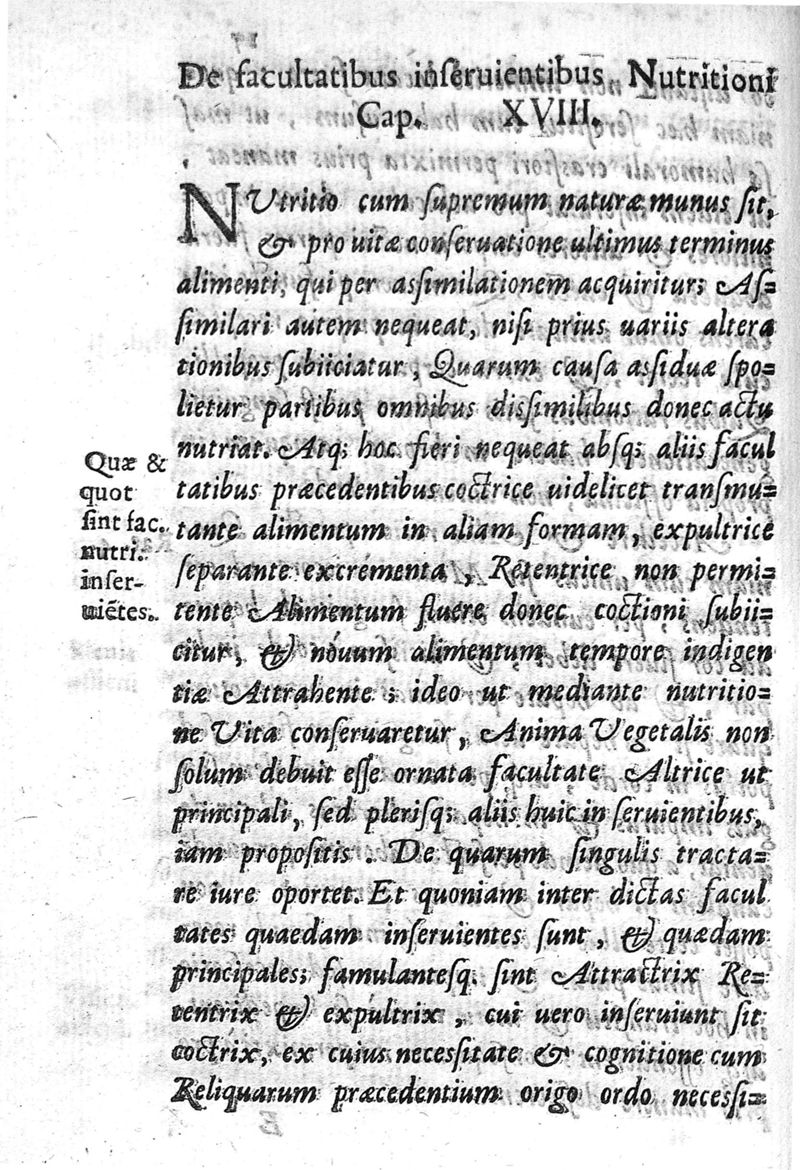 De facultatibus inſeruientibus Nutritioni
Cap. XVIII.
NUtritio cum ſupremum naturæ munus ſit,
& pro uitæ conſeruatione ultimus terminus
alimenti, qui per assimilationem acquiritur; Aſ=
ſimilari autem nequeat, niſi prius uariis altera
tionibus ſubiiciatur, Quarum cauſa aſſiduæ ſpo=
lietur partibus omnibus dissimilibus donec actu
nutriat. Atq; hoc fieri nequeat absq; aliis facul
tatibus præcedentibus coctrice uidelicet tranſmu=
tante alimentum in aliam formam, expultrice
ſeparante excrementa, Retentrice non permi=
tente Alimentum fluere donec coctioni ſubii=
citur, & nouum alimentum tempore indigen
tiæ Attrahente ; ideo ut mediante nutritio=
ne Vita conſeruaretur, Anima Vegetalis non
ſolum debuit eſſe ornata facultate Altrice ut
principali, ſed plerisq; aliis huic in ſeruientibus,
iam propoſitis. De quarum ſingulis tracta=
re iure oportet. Et quoniam inter dictas facul
tates quaedam inſeruientes ſunt, & quædam
principales; famulantesq. ſint Attractrix Re=
tentrix & expultrix, cui uero inſeruiunt ſit
coctrix, ex cuius neceſſitate & cognitione cum
Reliquarum præcedentium origo ordo neceſſi=
Quæ &
quot
ſint fac.
nutri.
inſer-
uiẽtes.